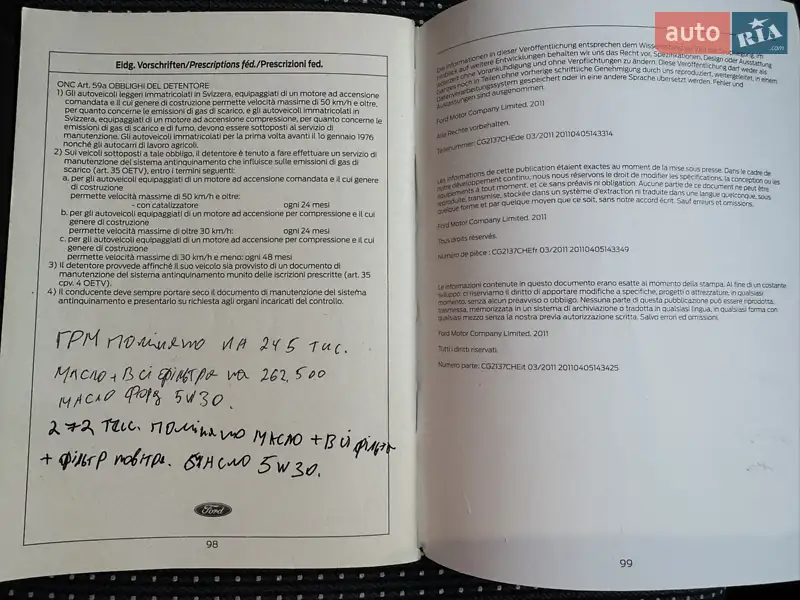 Eidg. Vorschriften/Prescriptions féd./Prescrizioni fed.
ONC Art. 59a OBBLIGHI DEL DETENTORE
1) Gli autoveicoli leggeri immatricolati in Svizzera, equipaggiati di un motore ad accensione
comandata e il cui genere di costruzione permette velocità massime di 50 km/h e oltre,
per quanto concerne le emissioni di gas di scarico, e gli autoveicoli immatricolati in
Svizzera, equipaggiati di un motore ad accensione compressione, per quanto concerne le
emissioni di gas di scarico e di fumo, devono essere sottoposti al servizio di
manutenzione. Gli autoveicoli immatricolati per la prima volta avanti il 1o gennaio 1976
nonché agli autocarri di lavoro agricoli.
2) Sui veicoli sottoposti a tale obbligo, il detentore è tenuto a fare effettuare un servizio di
manutenzione del sistema antinquinamento che influisce sulle emissioni di gas di
scarico (art. 35 OETV), entro i termini seguenti:
a. per gli autoveicoli equipaggiati di un motore ad accensione comandata e il cui genere
di costruzione
permette velocità massime di 50 km/h e oltre:
- con catalizzatore ogni 24 mesi
b. per gli autoveicoli equipaggiati di un motore ad accensione per compressione e il cui
genere di costruzione
permette velocità massime di oltre 30 km/h: ogni 24 mesi
c. per gli autoveicoli equipaggiati di un motore ad accensione per compressione e il cui
genere di costruzione
permette velocità massime di 30 km/h e meno: ogni 48 mesi
3) Il detentore provvede affinché il suo veicolo sia provvisto di un documento di
manutenzione del sistema antinquinamento munito delle iscrizioni prescritte (art. 35
cpv. 4 OETV)
4) Il conducente deve sempre portare seco il documento di manutenzione del sistema
antinquinamento e presentarlo su richiesta agli organi incaricati del controllo.
ГРМ поміняно на 245 тис.
Масло + всі фільтра на 262,500
масло Форд 5W30.
272 тис. поміняно масло + всі фільтра
+ фільтр повітря. масло 5W30.
Ford
98
auto RIA.com
Die Informationen in dieser Veröffentlichung entsprechen dem
Hinblick auf weitere Entwicklungen behalten wir uns das Recht vor, Spezifikationen, Design oder Ausstattung
jederzeit ohne Vorankündigung und ohne Verpflichtungen zu ändern. Diese Veröffentlichung darf weder als
Ganzes noch in Teilen ohne vorherige schriftliche Genehmigung durch uns reproduziert, weitergeleitet, in einem
Datenverarbeitungssystem gespeichert oder in eine andere Sprache übersetzt werden. Fehler und
Auslassungen sind ausgenommen.
Ford Motor Company Limited. 2011
Alle Rechte vorbehalten.
Teilenummer: CG2137CHEde 03/2011 20110405143314
Les informations de cette publication étaient exactes au moment de la mise sous presse. Dans le cadre de
notre développement continu, nous nous réservons le droit de modifier les spécifications, la conception ou les
équipements à tout moment, et ce sans préavis ni obligation. Aucune partie de ce document ne peut être
reproduite, transmise, stockée dans un système d'extraction ni traduite dans une langue quelconque, sous
quelque forme et par quelque moyen que ce soit, sans notre accord écrit. Sauf erreurs et omissions.
Ford Motor Company Limited. 2011
Tous droits réservés.
Numéro de pièce : CG2137CHEfr 03/2011 20110405143349
Le informazioni contenute in questo documento erano esatte al momento della stampa. Al fine di un costante
sviluppo, ci riserviamo il diritto di apportare modifiche a specifiche, progetto o attrezzature, in qualsiasi
momento, senza alcun preavviso o obbligo. Nessuna parte di questa pubblicazione può essere riprodotta,
trasmessa, memorizzata in un sistema di archiviazione o tradotta in qualsiasi lingua, in qualsiasi forma con
qualsiasi mezzo senza la nostra previa autorizzazione scritta. Salvo errori ed omissioni.
Ford Motor Company Limited. 2011
Tutti i diritti riservati.
Numero parte: CG2137CHEit 03/2011 20110405143425
99